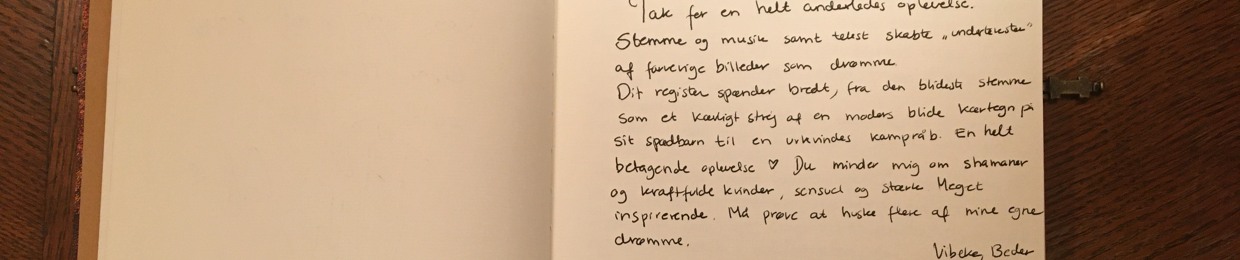 Tak for en helt anderledes oplevelse.
Stemme og musik samt tekst skabte „undertekster"
af farverige billeder som drømme
Dit register spænder bredt, fra den blideste stemme
som et kærligt strøg af en moders blide kærtegn på
sit spædbarn til en urkvindes kampråb. En helt
betagende oplevelse ♡ Du minder mig om shamaner
og kraftfulde kvinder, sensuel og stærk Meget
inspirerende. Må prøve at huske flere af mine egne
drømme.
Vibeke, Beder